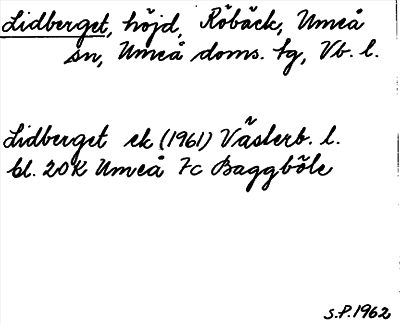 Lidberget, höjd, Röbäck, Umeå
sn, Umeå doms. tg, Vb. l.
Lidberget ek (1961) Västerb. l.
bl. 20K Umeå 7c Baggböle
S.P. 1962